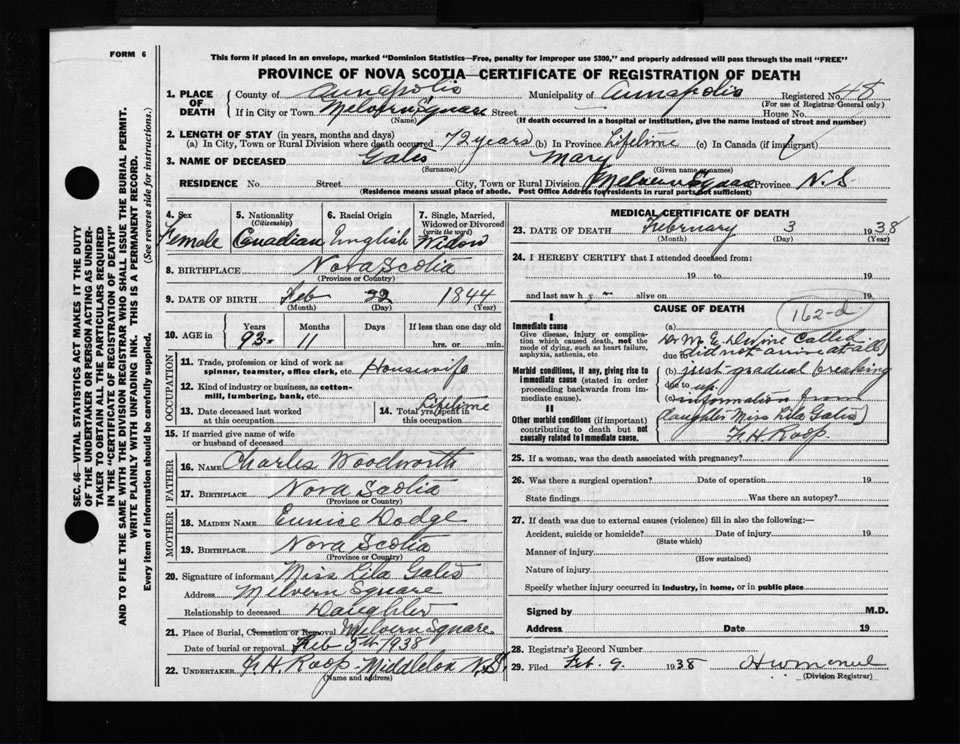 FORM 6
This form if placed in an envelope, marked "Dominion Statistics—Free, penalty for improper use $300," and properly addressed will pass through the mail "FREE"
PROVINCE OF NOVA SCOTIA—CERTIFICATE OF REGISTRATION OF DEATH
SEC. 46—VITAL STATISTICS ACT MAKES IT THE DUTY
OF THE UNDERTAKER OR PERSON ACTING AS UNDER-
TAKER TO OBTAIN ALL THE PARTICULARS REQUIRED
IN THE "CERTIFICATE OF REGISTRATION OF DEATH"
AND TO FILE THE SAME WITH THE DIVISION REGISTRAR WHO SHALL ISSUE THE BURIAL PERMIT.
WRITE PLAINLY WITH UNFADING INK. THIS IS A PERMANENT RECORD.
Every item of information should be carefully supplied. (See reverse side for instructions.)
1. PLACE OF DEATH
County of Annapolis Municipality of Annapolis Registered No. 48
(For use of Registrar-General only)
If in City or Town Melvern Square Street House No.
(Name) (If death occurred in a hospital or institution, give the name instead of street and number)
2. LENGTH OF STAY (in years, months and days)
(a) In City, Town or Rural Division where death occurred 72 years (b) In Province Lifetime (c) In Canada (if immigrant)
3. NAME OF DECEASED Gates Mary
(Surname) (Given name or names)
RESIDENCE No. Street City, Town or Rural Division Melvern Square Province N.S.
(Residence means usual place of abode. Post Office Address for residents in rural parts not sufficient)
4. Sex
Female
5. Nationality
(Citizenship)
Canadian
6. Racial Origin
English
7. Single, Married,
Widowed or Divorced
(write the word)
Widow
8. BIRTHPLACE Nova Scotia
(Province or Country)
9. DATE OF BIRTH Feb 22 1844
(Month) (Day) (Year)
10. AGE in
Years Months Days If less than one day old
93 11 hrs. or min.
OCCUPATION
11. Trade, profession or kind of work as
spinner, teamster, office clerk, etc. Housewife
12. Kind of industry or business, as cotton-
mill, lumbering, bank, etc.
13. Date deceased last worked
at this occupation
14. Total yrs. spent in
this occupation Lifetime
15. If married give name of wife
or husband of deceased
FATHER
16. NAME Charles Woodworth
17. BIRTHPLACE Nova Scotia
(Province or Country)
MOTHER
18. MAIDEN NAME Eunice Dodge
19. BIRTHPLACE Nova Scotia
(Province or Country)
20. Signature of informant Miss Lila Gates
Address Melvern Square
Relationship to deceased Daughter
21. Place of Burial, Cremation or Removal Melvern Square
Date of burial or removal Feb 5th 1938
22. UNDERTAKER F. H. Roop - Middleton N.S.
(Name and address)
MEDICAL CERTIFICATE OF DEATH
23. DATE OF DEATH February 3 1938
(Month) (Day) (Year)
24. I HEREBY CERTIFY that I attended deceased from:
19 to 19
and last saw h alive on 19
CAUSE OF DEATH 162-d
I
Immediate cause
Give disease, injury or complica-
tion which caused death, not the
mode of dying, such as heart failure,
asphyxia, asthenia, etc.
Morbid conditions, if any, giving rise to
immediate cause (stated in order
proceeding backwards from im-
mediate cause).
II
Other morbid conditions (if important)
contributing to death but not
causally related to immediate cause.
(a)
Dr M. E. Devine Called
due to did not arrive at all
(b) just gradual breaking
due to up.
(c) information from
daughter Miss Lila Gates
F. H. Roop.
25. If a woman, was the death associated with pregnancy?
26. Was there a surgical operation? Date of operation 19
State findings Was there an autopsy?
27. If death was due to external causes (violence) fill in also the following:—
Accident, suicide or homicide? Date of injury 19
(State which)
Manner of injury
(How sustained)
Nature of injury
Specify whether injury occurred in industry, in home, or in public place
Signed by M.D.
Address Date 19
28. Registrar's Record Number
29. Filed Feb. 9. 1938
(Division Registrar)